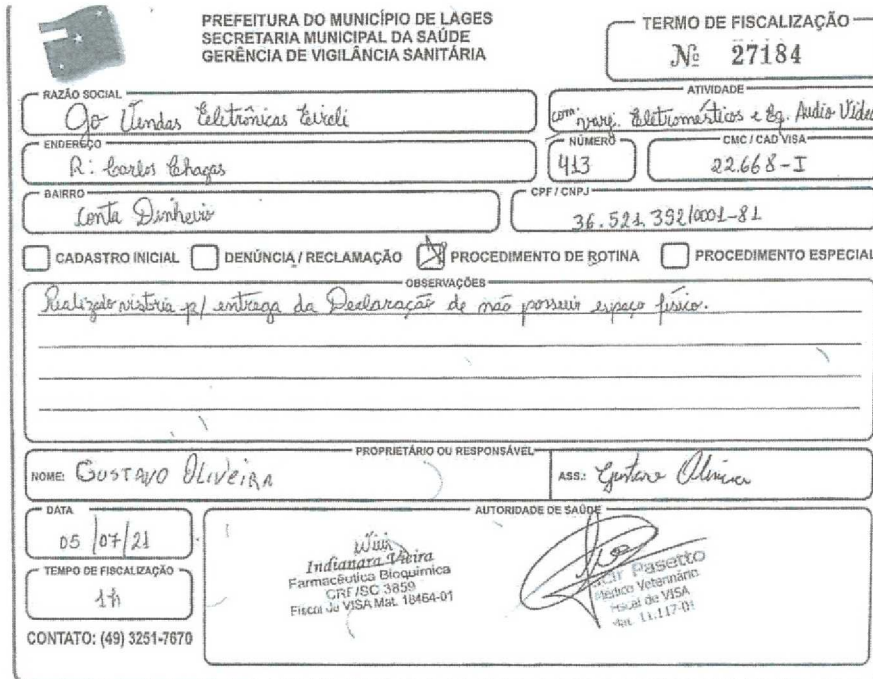 PREFEITURA DO MUNICÍPIO DE LAGES
SECRETARIA MUNICIPAL DA SAÚDE
GERÊNCIA DE VIGILÂNCIA SANITÁRIA
TERMO DE FISCALIZAÇÃO
Nº 27184
RAZÃO SOCIAL
Go Vendas Eletrônicas Eireli
ATIVIDADE
com. varej. Eletromésticos e Eq. Audio Video
ENDEREÇO
R: Carlos Chagas
NÚMERO
413
CMC / CAD VISA
22.668-I
BAIRRO
Conta Dinheiro
CPF / CNPJ
36.521.392/0001-81
CADASTRO INICIAL DENÚNCIA / RECLAMAÇÃO PROCEDIMENTO DE ROTINA PROCEDIMENTO ESPECIAL
OBSERVAÇÕES
Realizado vistoria p/ entrega da Declaração de não possuir espaço físico.
PROPRIETÁRIO OU RESPONSÁVEL
NOME: GUSTAVO OLIVEIRA
ASS.: Gustavo Oliveira
DATA
05/07/21
TEMPO DE FISCALIZAÇÃO
1h
CONTATO: (49) 3251-7670
AUTORIDADE DE SAÚDE
Indianara Vieira
Farmacêutica Bioquímica
CRF/SC 3859
Fiscal de VISA Mat. 18464-01
Pasetto
Médico Veterinário
Fiscal de VISA
Mat. 11.117-01